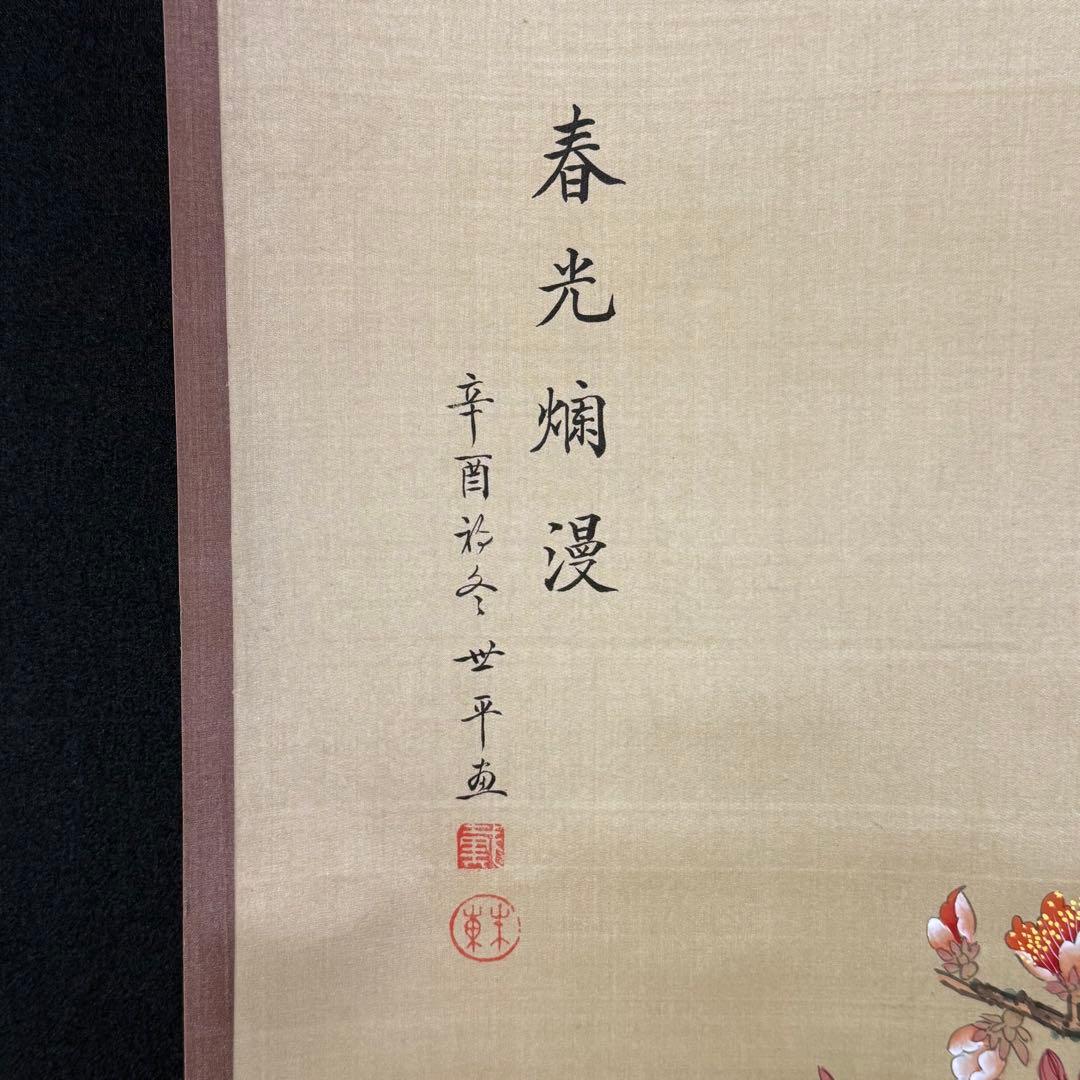 春光爛漫
辛酉初冬世平画
戴